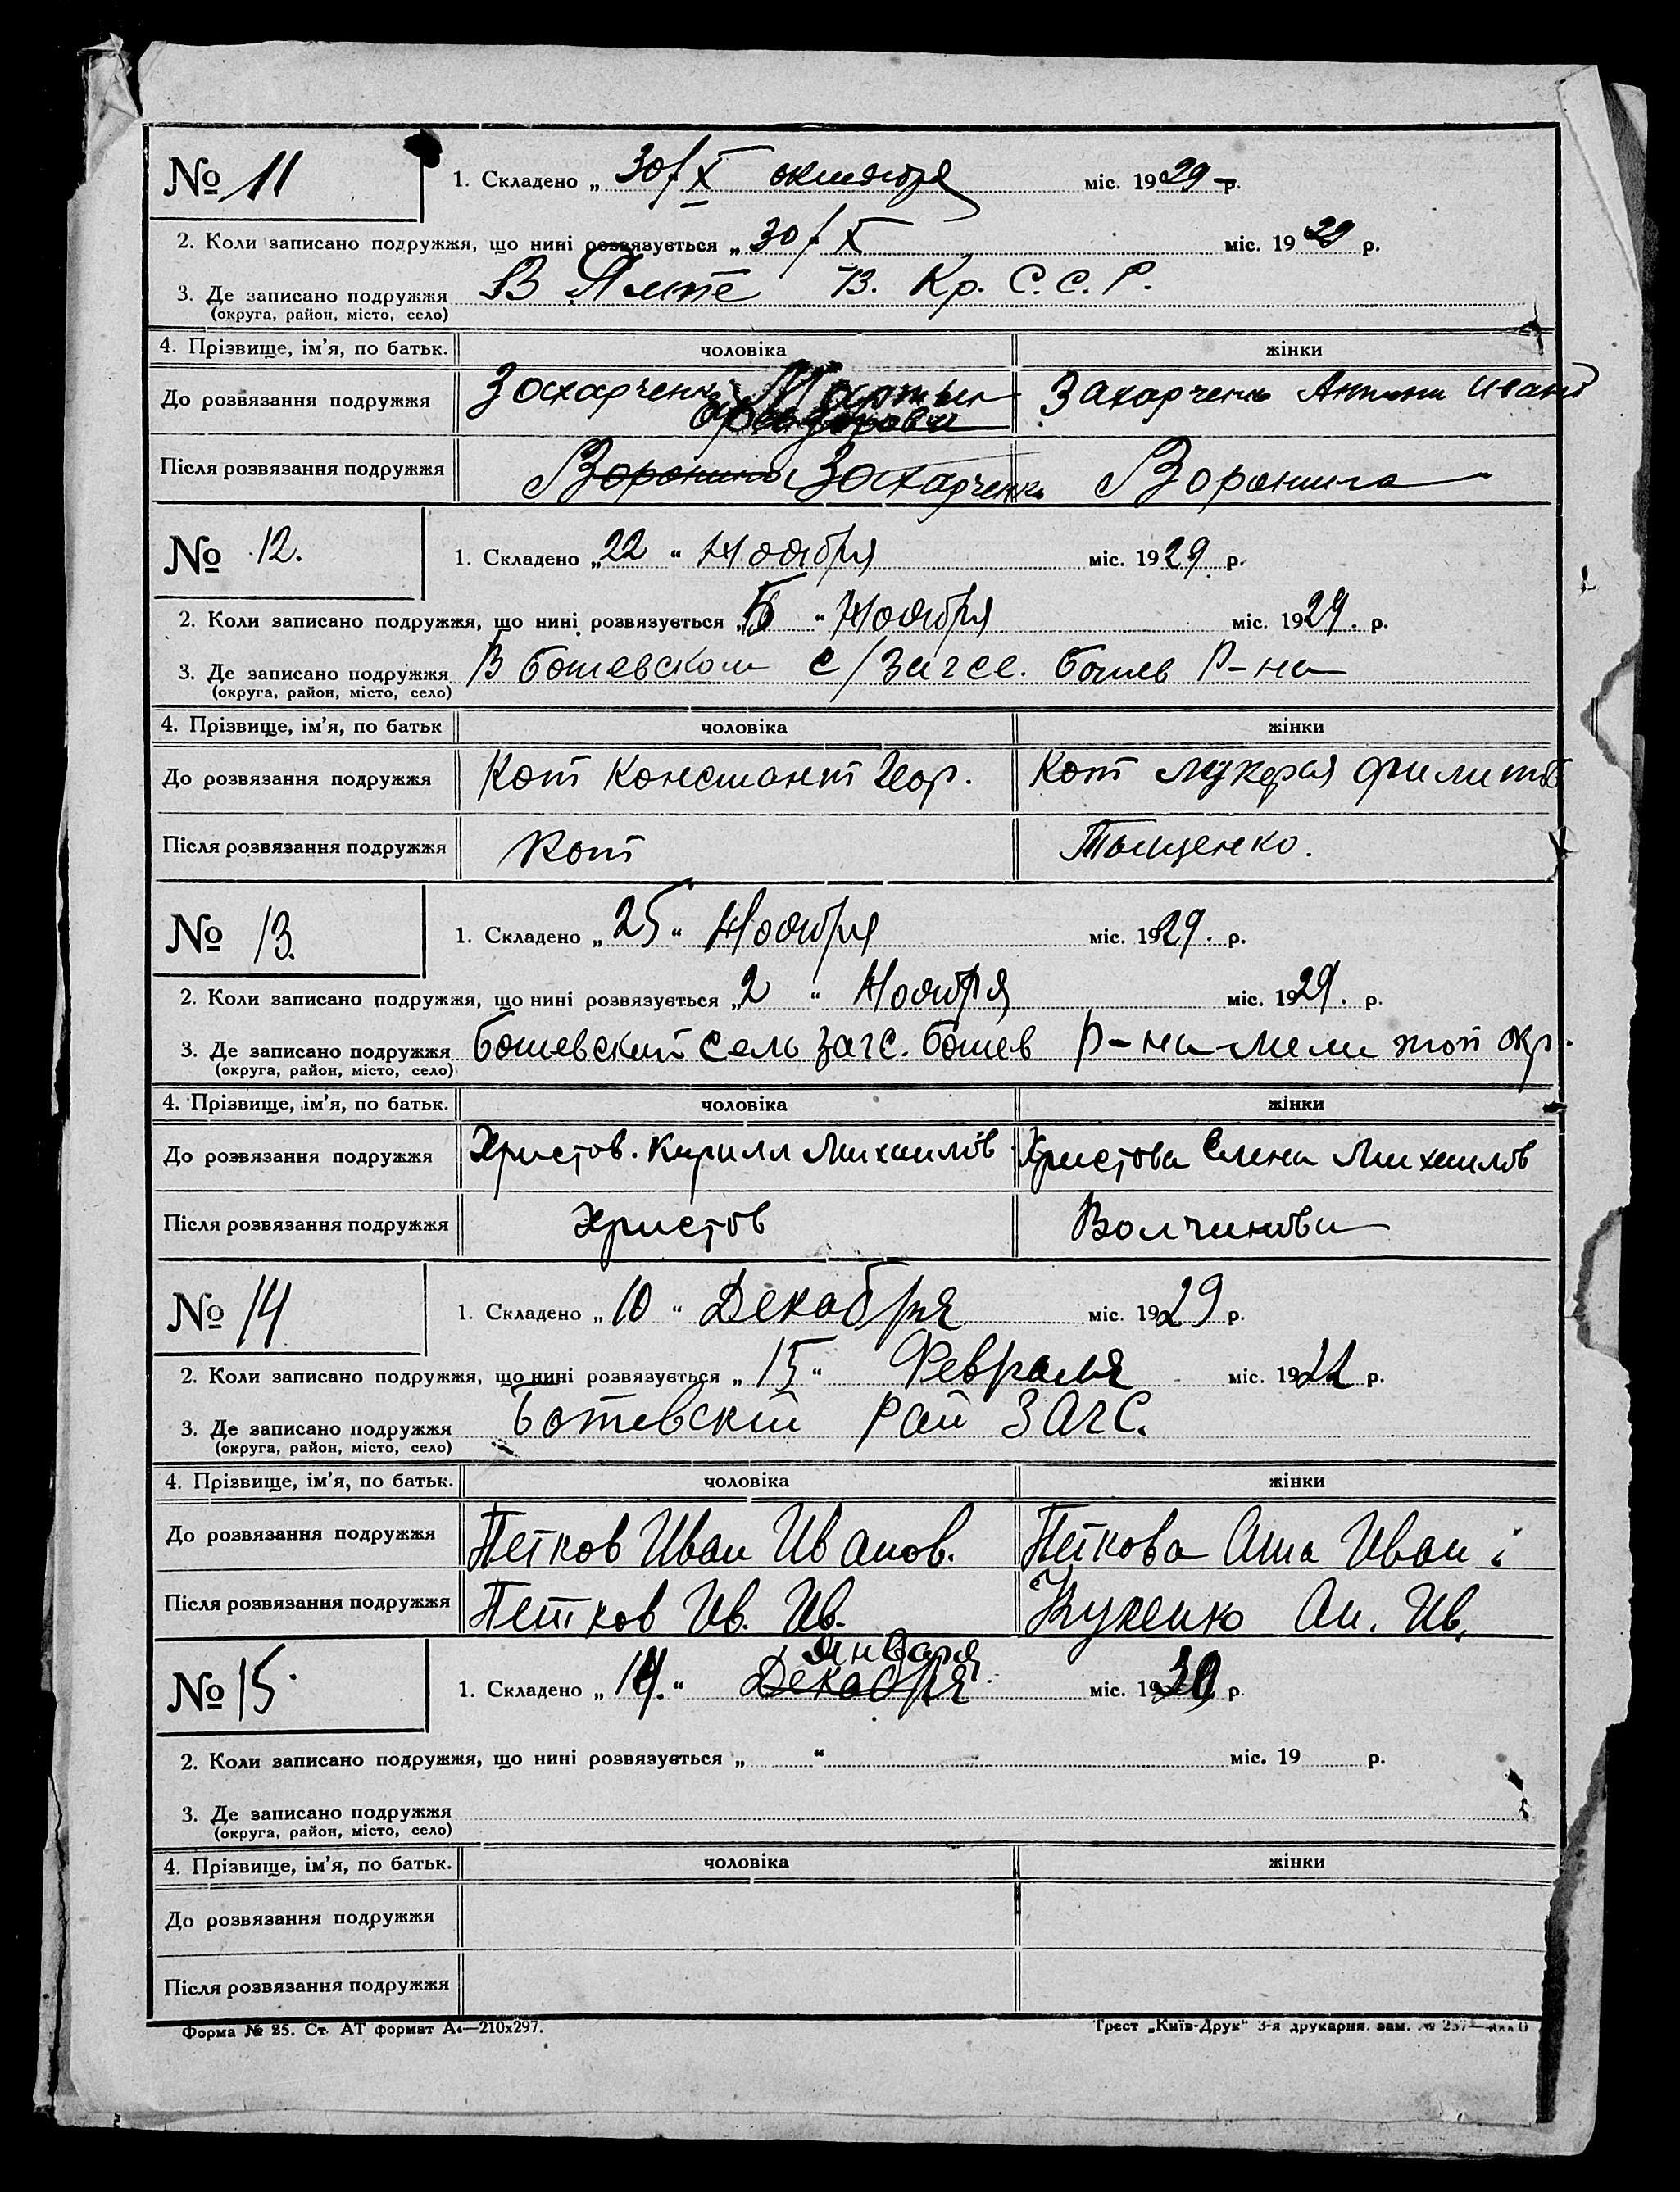 № 11
1. Складено „ 30/X октября міс. 1929 р.
2. Коли записано подружжя, що нині розвязується „ 30/X міс. 1929 р.
3. Де записано подружжя В Ялте В. Кр. С. С. Р.
(округа, район, місто, село)
4. Прізвище, ім'я, по батьк. чоловіка жінки
До розвязання подружжя Захарченко Мартын Захарченко Иван
Після розвязання подружжя Воронина Захарченко Воронина
№ 12.
1. Складено „ 22 “ Ноября міс. 1929 р.
2. Коли записано подружжя, що нині розвязується „ “ Ноября міс. 1929. р.
3. Де записано подружжя В Ботевском с/Загсе. Ботев Р-на
(округа, район, місто, село)
4. Прізвище, ім'я, по батьк чоловіка жінки
До розвязання подружжя Кот Констант Геор. Кот Лукерья Филипов
Після розвязання подружжя Кот Тыщенко.
№ 13.
1. Складено „ 25 “ Ноября міс. 1929. р.
2. Коли записано подружжя, що нині розвязується „ 2 “ Ноября міс. 1929. р.
3. Де записано подружжя Ботевский Сель Загс. Ботев Р-на Мелитоп окр.
(округа, район, місто, село)
4. Прізвище, ім'я, по батьк. чоловіка жінки
До розвязання подружжя Христов. Кирилл Михаилов Христова Елена Михаилов
Після розвязання подружжя Христов Волчинова
№ 14
1. Складено „ 10 “ Декабря міс. 1929 р.
2. Коли записано подружжя, що нині розвязується „ 15 “ Февраля міс. 1922 р.
3. Де записано подружжя Ботевский Рай ЗАГС.
(округа, район, місто, село)
4. Прізвище, ім'я, по батьк. чоловіка жінки
До розвязання подружжя Петков Иван Иванов. Петкова Анна Иван
Після розвязання подружжя Петков Ив. Ив. Куценко Ан. Ив.
января
№ 15.
1. Складено „ 14. “ Декабря міс. 1930 р.
2. Коли записано подружжя, що нині розвязується „ “ міс. 19 р.
3. Де записано подружжя
(округа, район, місто, село)
4. Прізвище, ім'я, по батьк. чоловіка жінки
До розвязання подружжя
Після розвязання подружжя
Форма № 25. Ст. АТ формат А4—210x297. Трест „Київ-Друк“ 3-я друкарня. зам. № 257—